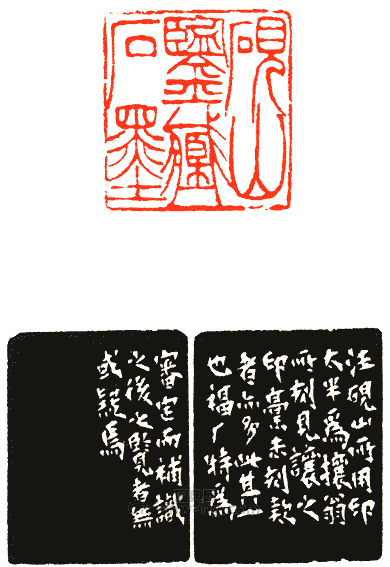 硯山
鑒藏
石墨
汪硯山所用印
太半為攘翁
所刻見讓之
印稾未刻款
者亦多此其一
也福厂特為
審定而補識
之後之覽者無
或疑焉